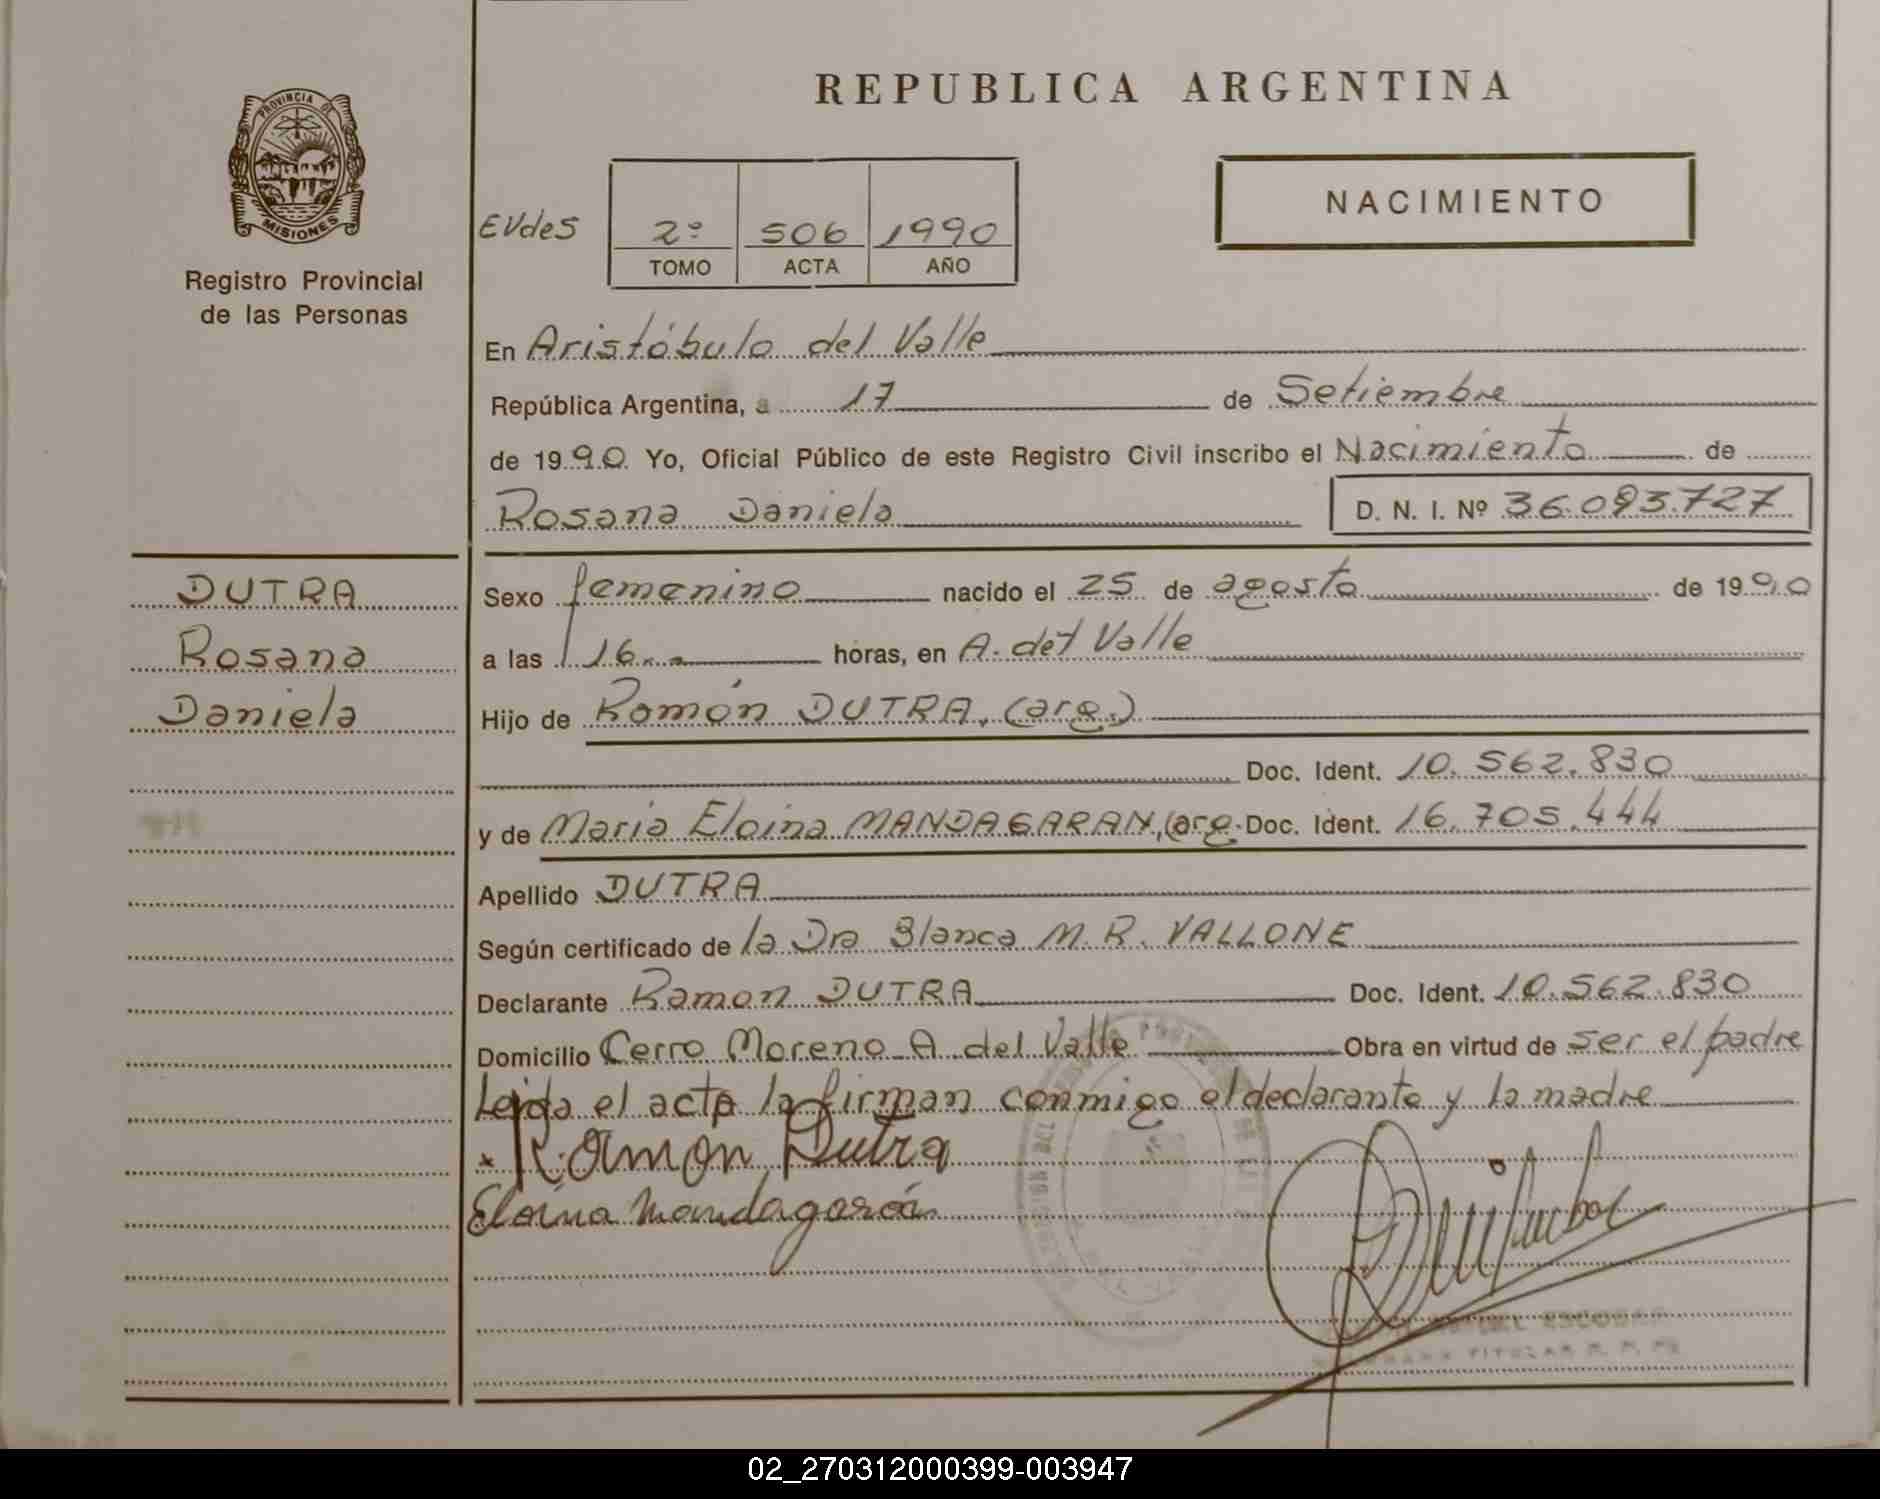 REPUBLICA ARGENTINA
PROVINCIA DE
MISIONES
Registro Provincial
de las Personas
NACIMIENTO
EVdeS
2º 506 1990
TOMO ACTA AÑO
En Aristóbulo del Valle
República Argentina, a 17 de Setiembre
de 1990 Yo, Oficial Público de este Registro Civil inscribo el Nacimiento de
Rosana Daniela D. N. I. Nº 36.093.727
DUTRA
Rosana
Daniela
Sexo femenino nacido el 25 de agosto de 1990
a las 16.. horas, en A. del Valle
Hijo de Román DUTRA, (arg.)
Doc. Ident. 10.562.830
y de Maria Eloina MANDAGARAN, (arg. Doc. Ident. 16.705.444
Apellido DUTRA
Según certificado de la Dra Blanca M. R. VALLONE
Declarante Ramon DUTRA Doc. Ident. 10.562.830
Domicilio Cerro Moreno A. del Valle Obra en virtud de ser el padre
Leida el acta la firman conmigo el declarante y la madre
Ramon Dutra
Eloina Mandagarán
ESCOBAR
TITULAR R. P. Ps
02_270312000399-003947